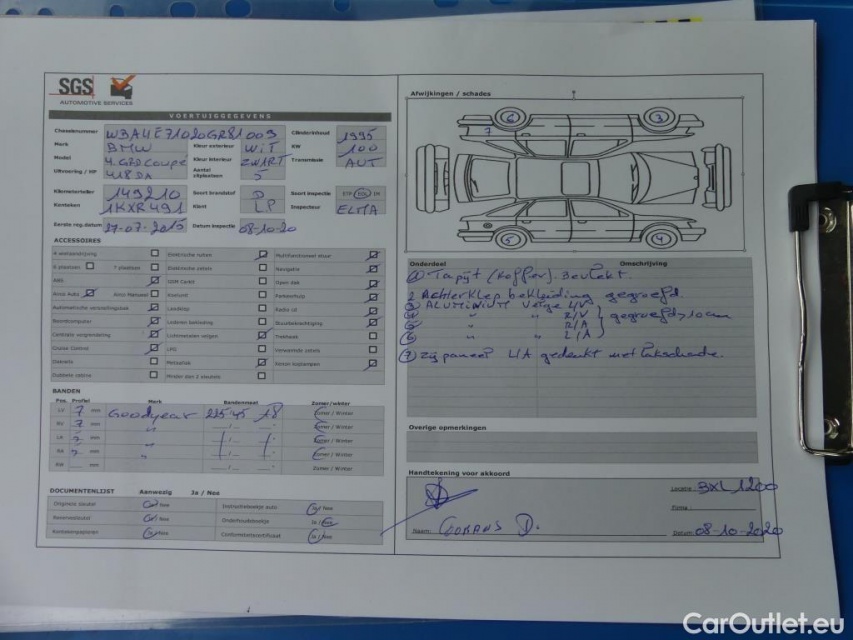 SGS
AUTOMOTIVE SERVICES
VOERTUIGGEGEVENS
Chassisnummer WBA4E71020GR81009 Cilinderinhoud 1995
Merk BMW Kleur exterieur WIT KW 100
Model 4.GRD COUPE Kleur interieur ZWART Transmissie AUT
Uitvoering / HP 418 DA Aantal zitplaatsen 5
Kilometerteller 149210 Soort brandstof D Soort inspectie
Kenteken 1KXR491 Klant LP Inspecteur ELMA
Eerste reg.datum 27-07-2015 Datum inspectie 08-10-20
ACCESSOIRES
4 wielaandrijving Elektrische ruiten Multifunctioneel stuur
5 plaatsen 7 plaatsen Elektrische zetels Navigatie
ABS GSM Carkit Open dak
Airco Auto Airco Manueel Klimaat Parkeerhulp
Automatische versnellingsbak Laadklep Radio cd
Boordcomputer Lederen bekleding Stuurbekrachtiging
Centrale vergrendeling Lichtmetalen velgen Trekhaak
Cruise Control LPG Verwarmde zetels
Dakrails Metaallak Xenon koplampen
Dubbele cabine Minder dan 2 sleutels
BANDEN
Pos. Profiel Merk Bandenmaat Zomer/winter
LV 7 mm Goodyear 225/45 18 Zomer / Winter
RV 7 mm " Zomer / Winter
LA 7 mm " Zomer / Winter
RA 7 mm " Zomer / Winter
RW mm Zomer / Winter
DOCUMENTENLIJST Aanwezig Ja / Nee
Originele sleutel Ja / Nee Instructieboekje auto Ja / Nee
Reservesleutel Ja / Nee Onderhoudsboekje Ja / Nee
Kentekenpapieren Ja / Nee Conformiteitscertificaat Ja / Nee
Afwijkingen / schades
6 3
7
5 4
Onderdeel Omschrijving
1 Tapijt (Koffer). Bevlekt.
2 Achterklep bekleding gegroefd.
3 ALUMINIUM Velge L/V
4 " " R/V gegroefd >10cm
5 " " R/A
6 " " L/A
7 Zijpaneel L/A gedeukt met lakschade.
Overige opmerkingen
Handtekening voor akkoord
Locatie: BXL 1200
Firma:
Naam: D. Datum: 08-10-2020
CarOutlet.eu